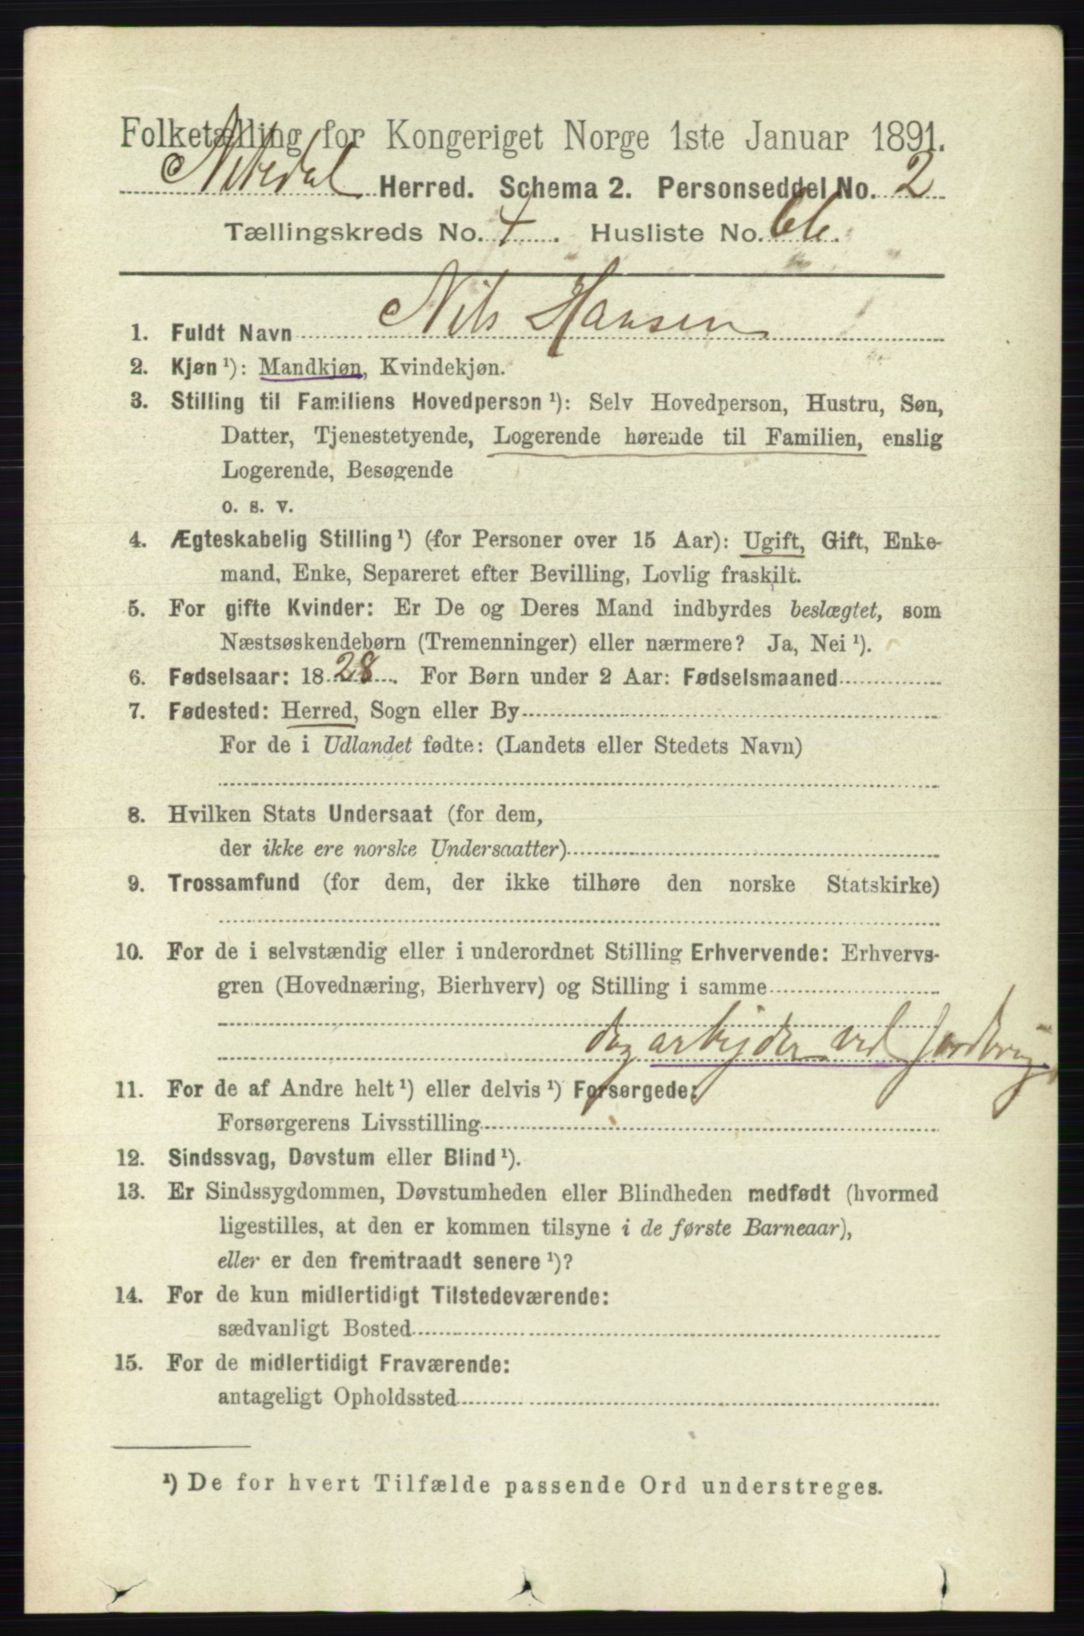 Folketælling for Kongeriget Norge 1ste Januar 1891.
Nitedal Herred. Schema 2. Personseddel No. 2
Tællingskreds No. 4. Husliste No. 66.
1. Fuldt Navn Nils Hansen
2. Kjøn ¹): Mandkjøn, Kvindekjøn.
3. Stilling til Familiens Hovedperson ¹): Selv Hovedperson, Hustru, Søn,
Datter, Tjenestetyende, Logerende hørende til Familien, enslig
Logerende, Besøgende
o. s. v.
4. Ægteskabelig Stilling ¹) (for Personer over 15 Aar): Ugift, Gift, Enke-
mand, Enke, Separeret efter Bevilling, Lovlig fraskilt.
5. For gifte Kvinder: Er De og Deres Mand indbyrdes beslægtet, som
Næstsøskendebørn (Tremenninger) eller nærmere? Ja, Nei ¹).
6. Fødselsaar: 1828. For Børn under 2 Aar: Fødselsmaaned
7. Fødested: Herred, Sogn eller By
For de i Udlandet fødte: (Landets eller Stedets Navn)
8. Hvilken Stats Undersaat (for dem,
der ikke ere norske Undersaatter)
9. Trossamfund (for dem, der ikke tilhøre den norske Statskirke)
10. For de i selvstændig eller i underordnet Stilling Erhvervende: Erhvervs-
gren (Hovednæring, Bierhverv) og Stilling i samme
dagarbejder ved Jordbrug
11. For de af Andre helt ¹) eller delvis ¹) Forsørgede:
Forsørgerens Livsstilling
12. Sindssvag, Døvstum eller Blind ¹).
13. Er Sindssygdommen, Døvstumheden eller Blindheden medfødt (hvormed
ligestilles, at den er kommen tilsyne i de første Barneaar),
eller er den fremtraadt senere ¹)?
14. For de kun midlertidigt Tilstedeværende:
sædvanligt Bosted
15. For de midlertidigt Fraværende:
antageligt Opholdssted
¹) De for hvert Tilfælde passende Ord understreges.